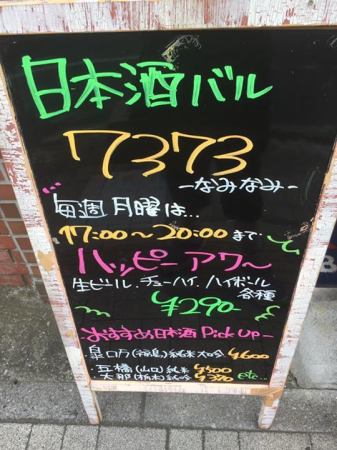 日本酒バル
7373
-なみなみ-
毎週月曜は...
17:00〜20:00まで
ハッピーアワ〜
生ビール.チューハイ.ハイボール
各種
¥290-
-おすすめ日本酒 Pick Up-
(福島)純米大吟 ¥600
・五橋(山口)純米 ¥500
大那(栃木)純吟 etc...